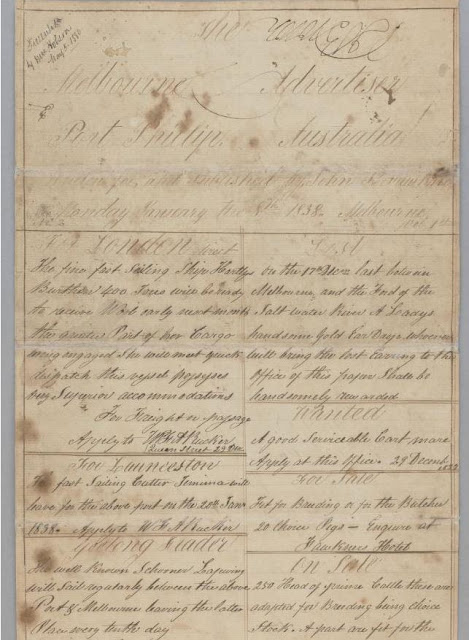 The
Melbourne Advertiser
Port Phillip Australia
and published by John
Monday January the 8th 1838. Melbourne
For London direct
The fine fast Sailing Ship
Burthen 400 Tons will be ready
to receive Wool early next month
the greater Part of her Cargo
being engaged She will meet quick
dispatch this vessel possesses
very Superior accommodations
For Freight or passage
Apply to W F A Rucker
Queen Street 29 Dec
For Launceston
The fast Sailing Cutter Jemima will
leave for the above port on the 20th Jany
1838. Apply to W F A Rucker
Geelong Trader
The well Known Schooner Lapwing
will Sail regularly between the above
Port & Melbourne leaving the latter
Place every tenth day
Lost
on the 17th last between
Melbourne, and the Ford of the
Salt water River A Ladys
handsome Gold Ear Drop whoever
will bring the lost Earring to the
Office of this paper Shall be
handsomely rewarded
Wanted
A good Serviceable Cart mare
Apply at this Office. 29 Decemb
For Sale
Fit for Breeding or for the Butcher
20 Choice Pigs — Enquire at
Fawkners Hotel
On Sale
250 Head of prime Cattle these are
adapted for Breeding being choice
Stock. A part are fit for the